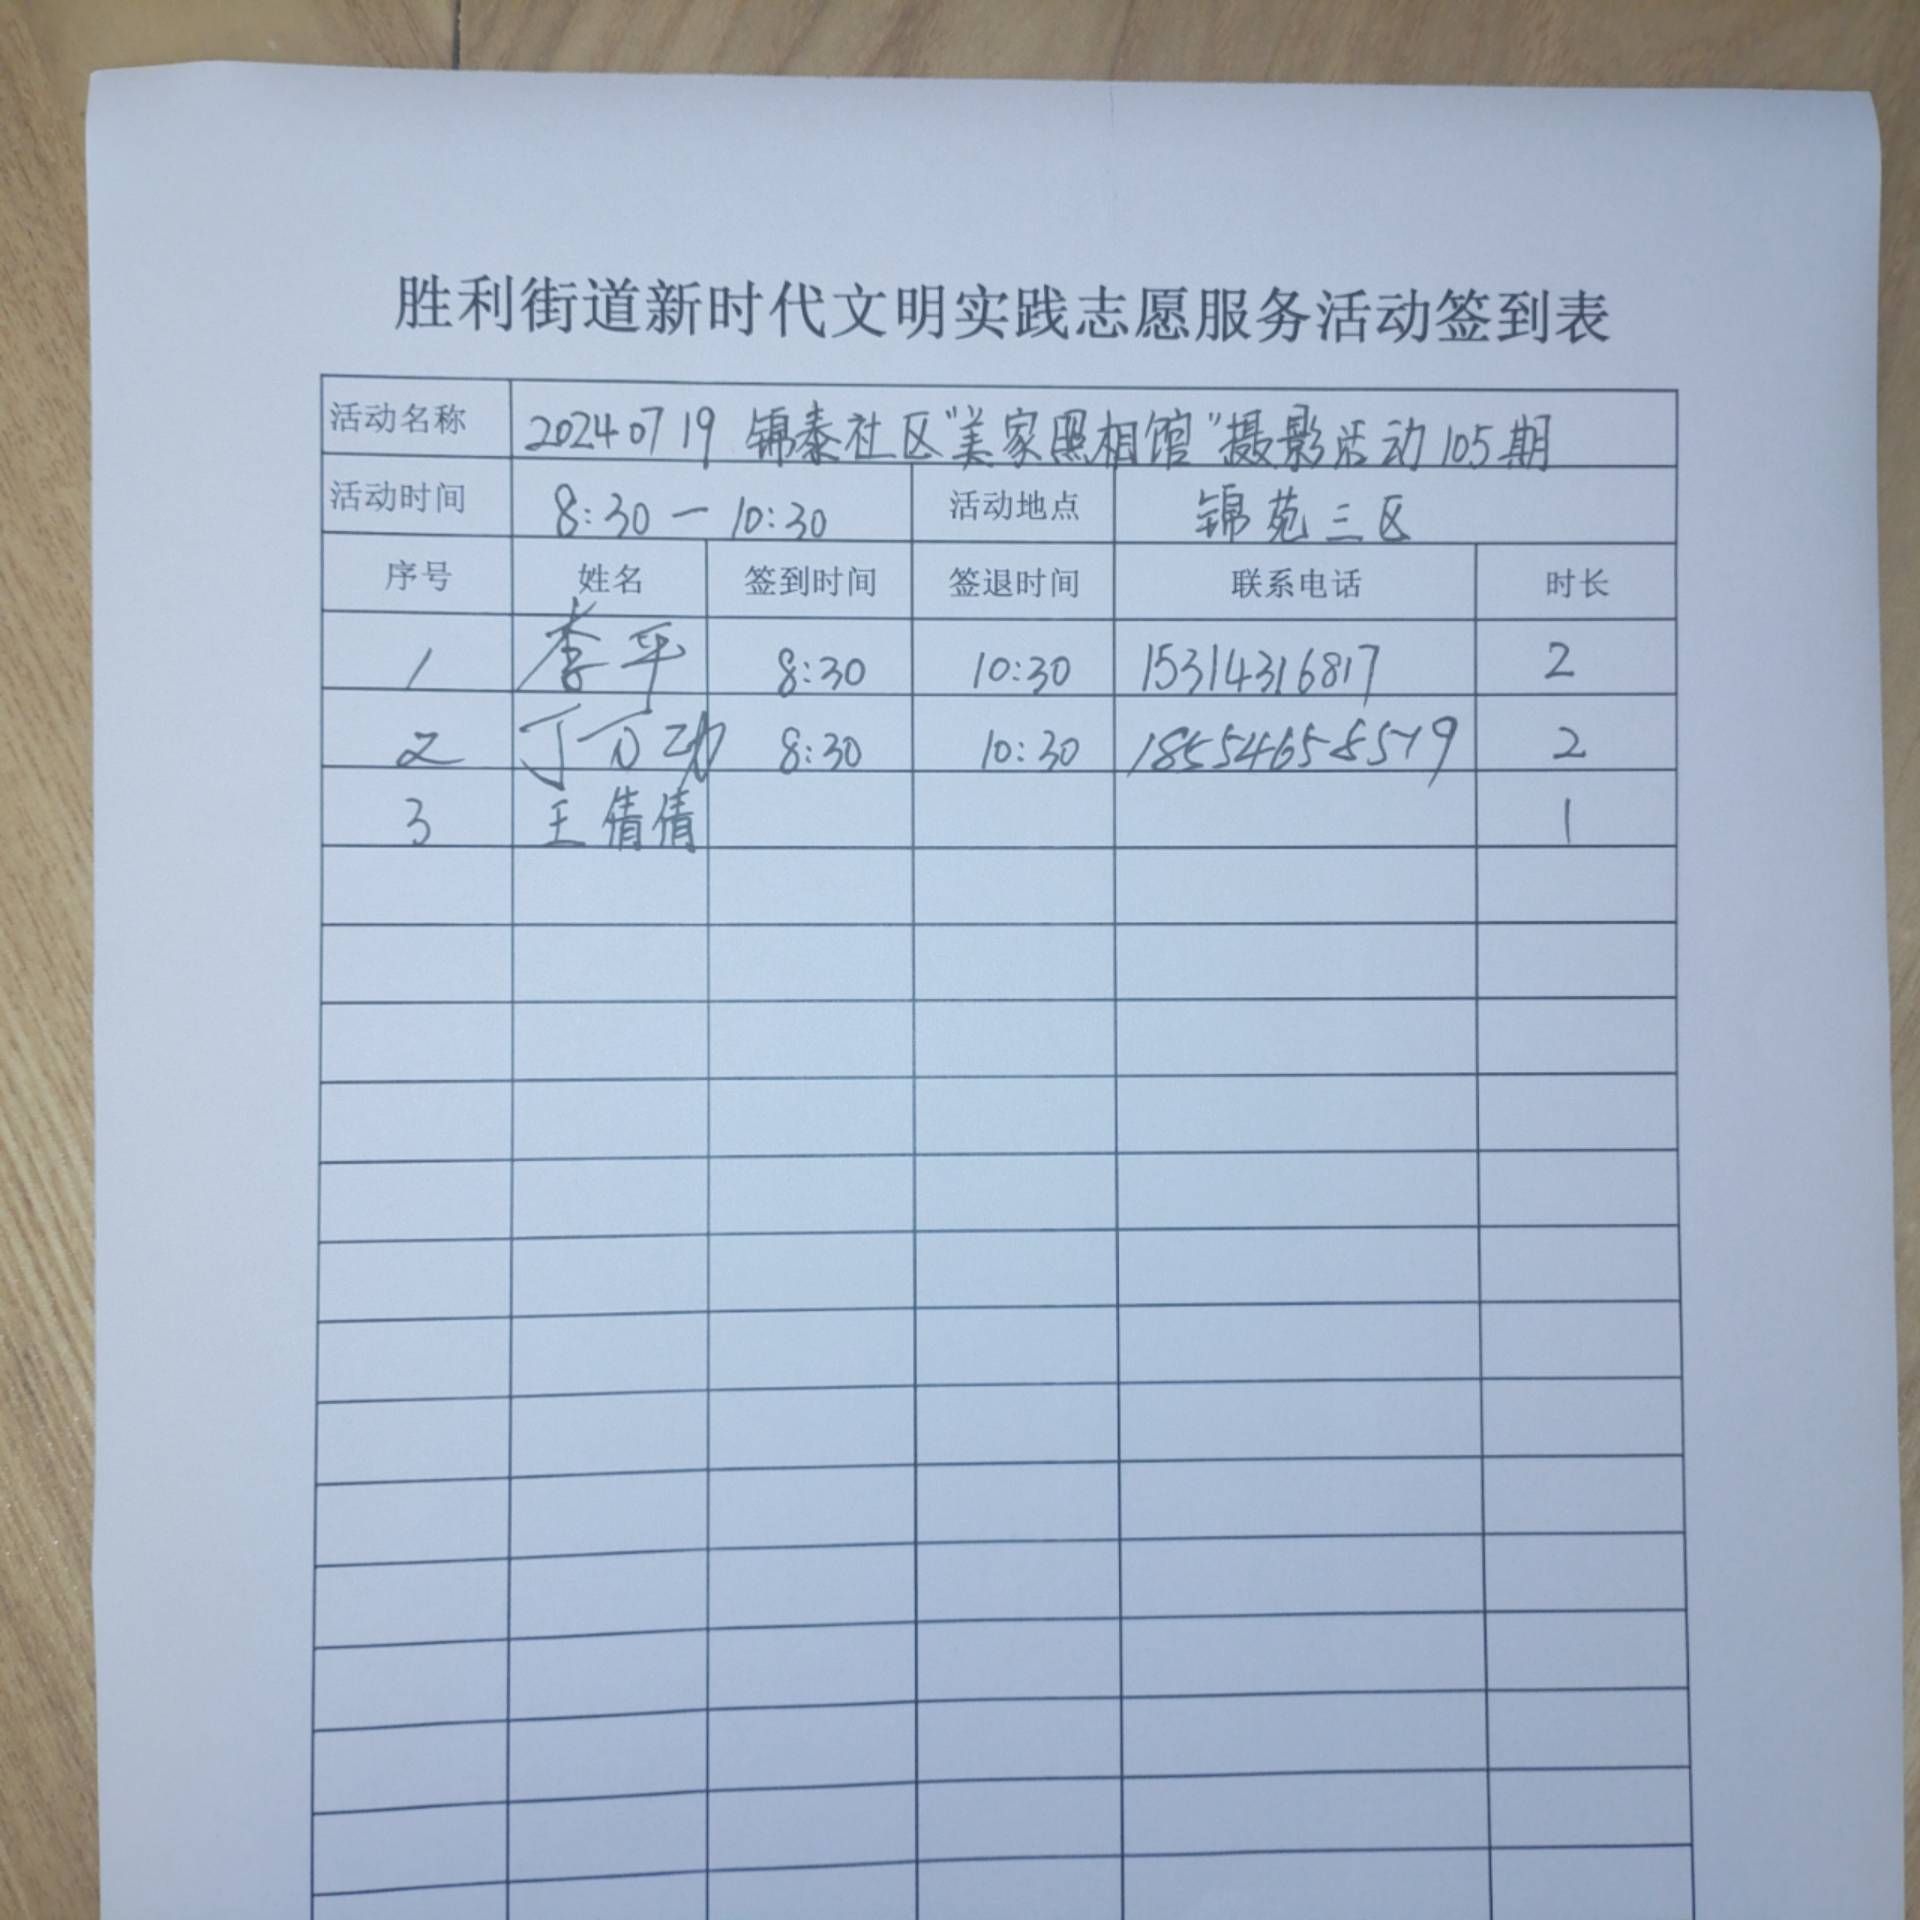 胜利街道新时代文明实践志愿服务活动签到表
活动名称 20240719 锦泰社区"美家照相馆"摄影活动105期
活动时间 8:30—10:30 活动地点 锦苑三区
序号 姓名 签到时间 签退时间 联系电话 时长
1 李平 8:30 10:30 15314316817 2
2 丁万功 8:30 10:30 2
3 王倩倩 1